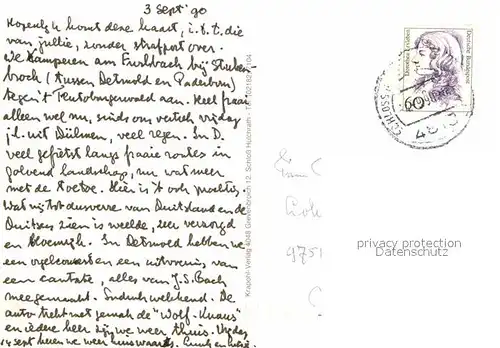 3 Sept '90
Hopenlijk komt deze kaart, i.t.t. die
van jullie, zonder strafport over.
We kamperen am Furlbach bij Stuken-
broch (tussen Detmold en Paderborn)
tegen 't Teutoburgerwald aan. Heel fraai
alleen wel nu, sinds ons vertrek vrijdag
j.l. uit Dülmen, veel regen. In D.
veel gefietst langs fraaie routes in
golvend landschap, nu wat meer
met de toetoe. Hier is 't ook prachtig.
Wat wij tot dusverre van Duitsland en de
Duitsers zien is weelde, zeer verzorgd
en bloemrijk. In Detmold hebben we
een orgelconcert en een uitvoering van
een cantate, alles van J.S. Bach
meegemaakt. Indrukwekkend. De
auto trekt met gemak de "Wolf-Knaus"
en iedere keer zijn we weer thuis. Vrijdag
14 sept keren we weer huiswaarts.
Krapohl-Verlag 4048 Grevenbroich 12, Schloß Hülchrath
Deutsche Bundespost
60
SCHLOSS
4815
9751
privacy protection
Datenschutz